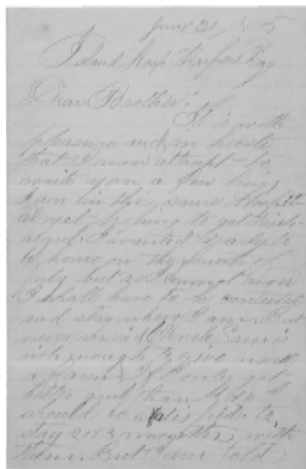 June 30 / 65
Island Hosp Harpers
Dear Brother:
It is with
pleasure and in haste
that I now attempt to
write you a few lines
I am in the same Hospit
al yet hoping to get disch
arged. I wanted
to home on the fourth of
July but as I cannot
I shall have to be contented
and stay where I am. But
never mind Uncle Sam is
rich enough to give me
a farm. If I only get
better
should be satisfied to
stay 2 or 3 months with
him. But I am told